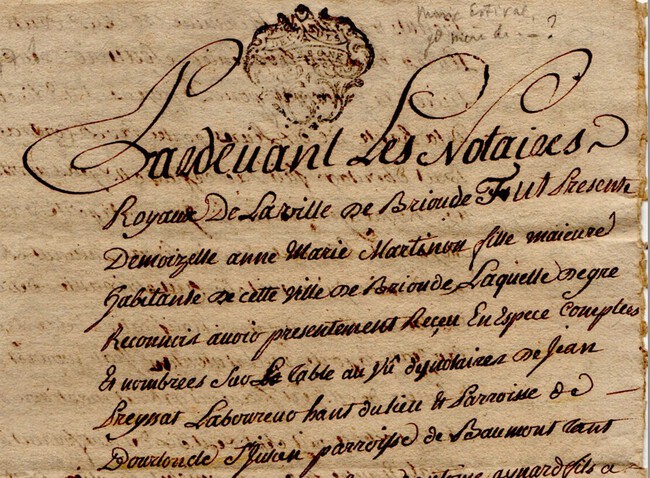 Pardevant Les Notaires
Royaux De La ville de Brioude Fut Presente
Demoizelle anne Marie Martinon fille maieure
habitante de cette ville de Brioude Laquelle de gre
Reconneis avoir presentement Receu En Espece Comptees
Et nombrees Sur La table au vû dynotaires de Jean
Preyssat Laboureur hant du lieu & Parroisse de
St Julien parroisse de Beaumont tant
aynard fils a